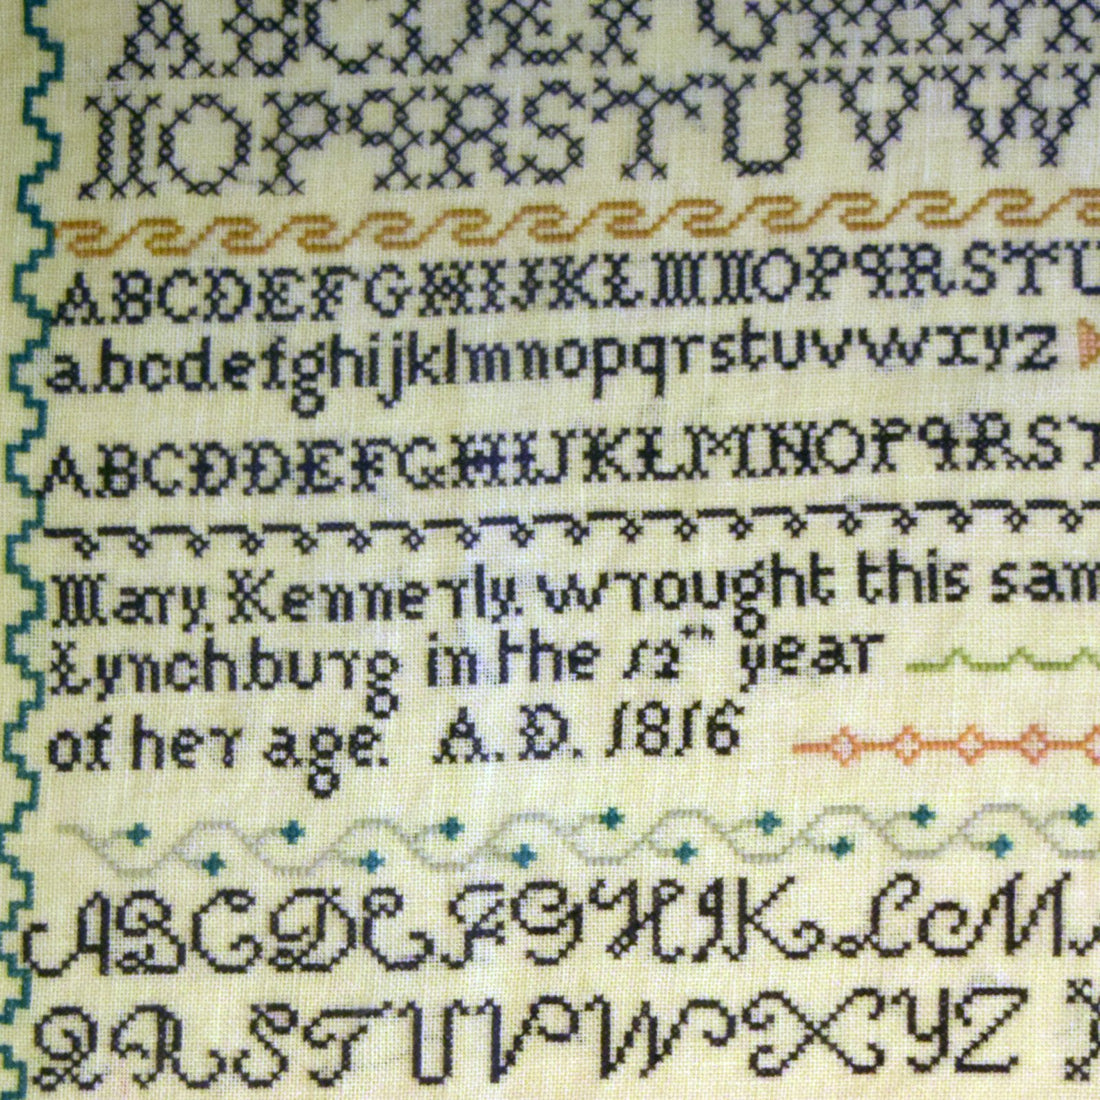 ABCDEF G
NOPQRSTUVW
ABCDEFGHIJKLMNOPQRSTU
abcdefghijklmnopqrstuvwxyz
ABCDDEFGHIJKLMNOPQRST
Mary Kennerly wrought this sam
Lynchburg in the 12th year
of her age. A.D. 1816
ABCDEFGHIKLM
QRSTUVWXYZ